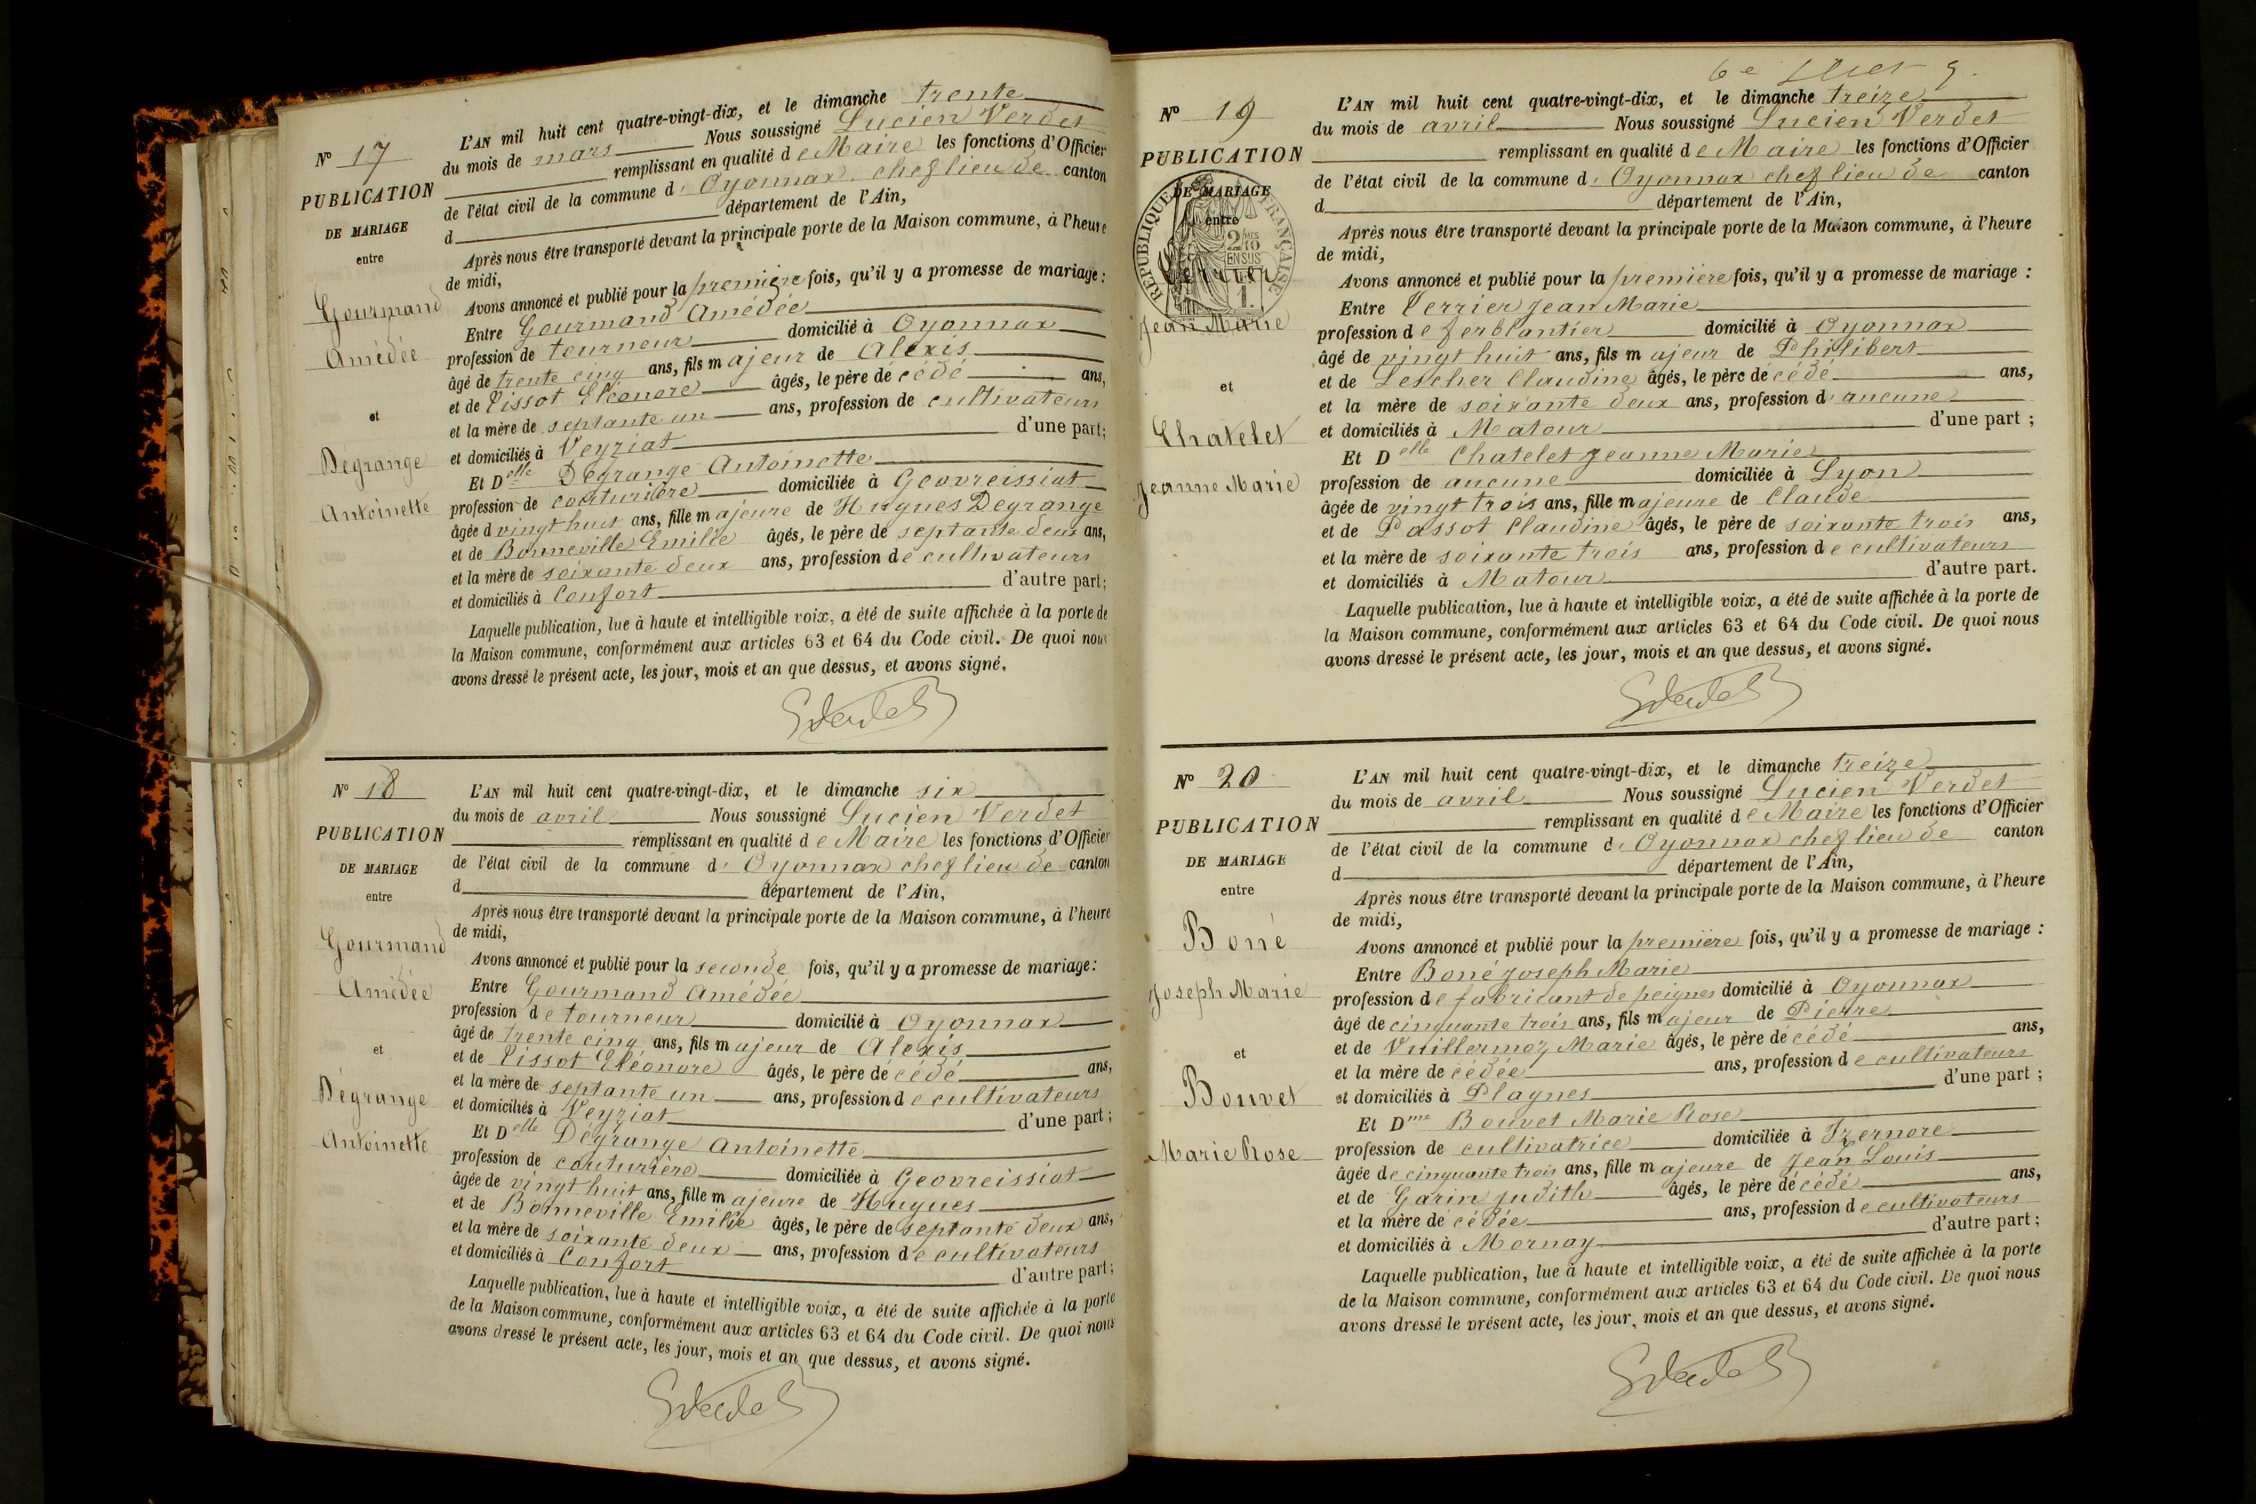 Nº 17
PUBLICATION
DE MARIAGE
entre
Gourmand
Amédée
et
Degrange
Antoinette
L'AN mil huit cent quatre-vingt-dix, et le dimanche trente
du mois de mars Nous soussigné Lucien Verdet
remplissant en qualité de Maire les fonctions d'Officier
de l'état civil de la commune d' Oyonnax chef lieu de canton
d département de l'Ain,
Après nous être transporté devant la principale porte de la Maison commune, à l'heure
de midi,
Avons annoncé et publié pour la première fois, qu'il y a promesse de mariage :
Entre Gourmand Amédée
profession de tourneur domicilié à Oyonnax
âgé de trente cinq ans, fils majeur de Alexis
et de Pissot Eléonore âgés, le père décédé ans,
et la mère de septante un ans, profession de cultivateurs
et domiciliés à Veyziat d'une part;
Et Delle Dégrange Antoinette
profession de couturière domiciliée à Geovreissiat
âgée d vingt huit ans, fille majeure de Hugues Degrange
et de Bonneville Emilie âgés, le père de septante deux ans,
et la mère de soixante deux ans, profession de cultivateurs
et domiciliés à Confort d'autre part;
Laquelle publication, lue à haute et intelligible voix, a été de suite affichée à la porte de
la Maison commune, conformément aux articles 63 et 64 du Code civil. De quoi nous
avons dressé le présent acte, les jour, mois et an que dessus, et avons signé.
Nº 18
PUBLICATION
DE MARIAGE
entre
Gourmand
Amédée
et
Dégrange
Antoinette
L'AN mil huit cent quatre-vingt-dix, et le dimanche six
du mois de avril Nous soussigné Lucien Verdet
remplissant en qualité de Maire les fonctions d'Officier
de l'état civil de la commune d' Oyonnax chef lieu de canton
d département de l'Ain,
Après nous être transporté devant la principale porte de la Maison commune, à l'heure
de midi,
Avons annoncé et publié pour la seconde fois, qu'il y a promesse de mariage:
Entre Gourmand Amédée
profession de tourneur domicilié à Oyonnax
âgé de trente cinq ans, fils majeur de Alexis
et de Pissot Eléonore âgés, le père décédé ans,
et la mère de septante un ans, profession de cultivateurs
et domiciliés à Veyziat d'une part;
Et Delle Dégrange Antoinette
profession de couturière domiciliée à Geovreissiat
âgée de vingt huit ans, fille majeure de Hugues
et de Bonneville Emilie âgés, le père de septante deux ans,
et la mère de soixante deux ans, profession de cultivateurs
et domiciliés à Confort d'autre part;
Laquelle publication, lue à haute et intelligible voix, a été de suite affichée à la porte
de la Maison commune, conformément aux articles 63 et 64 du Code civil. De quoi nous
avons dressé le présent acte, les jour, mois et an que dessus, et avons signé.
6e
Nº 19
PUBLICATION
DE MARIAGE
entre
RÉPUBLIQUE FRANÇAISE
Jean Marie
et
Chatelet
Jeanne Marie
L'AN mil huit cent quatre-vingt-dix, et le dimanche treize
du mois de avril Nous soussigné Lucien Verdet
remplissant en qualité de Maire les fonctions d'Officier
de l'état civil de la commune d' Oyonnax chef lieu de canton
d département de l'Ain,
Après nous être transporté devant la principale porte de la Maison commune, à l'heure
de midi,
Avons annoncé et publié pour la première fois, qu'il y a promesse de mariage :
Entre Perrier Jean Marie
profession de ferblantier domicilié à Oyonnax
âgé de vingt huit ans, fils majeur de Philibert
et de Lescher Claudine âgés, le père décédé ans,
et la mère de soixante deux ans, profession d' aucune
et domiciliés à Matour d'une part ;
Et Delle Chatelet Jeanne Marie
profession de aucune domiciliée à Lyon
âgée de vingt trois ans, fille majeure de Claude
et de Passot Claudine âgés, le père de soixante trois ans,
et la mère de soixante trois ans, profession de cultivateurs
et domiciliés à Matour d'autre part.
Laquelle publication, lue à haute et intelligible voix, a été de suite affichée à la porte de
la Maison commune, conformément aux articles 63 et 64 du Code civil. De quoi nous
avons dressé le présent acte, les jour, mois et an que dessus, et avons signé.
Nº 20
PUBLICATION
DE MARIAGE
entre
Boné
Joseph Marie
et
Bouvet
Marie Rose
L'AN mil huit cent quatre-vingt-dix, et le dimanche treize
du mois de avril Nous soussigné Lucien Verdet
remplissant en qualité de Maire les fonctions d'Officier
de l'état civil de la commune d' Oyonnax chef lieu de canton
d département de l'Ain,
Après nous être transporté devant la principale porte de la Maison commune, à l'heure
de midi,
Avons annoncé et publié pour la première fois, qu'il y a promesse de mariage :
Entre Boné Joseph Marie
profession de fabricant de peignes domicilié à Oyonnax
âgé de cinquante trois ans, fils majeur de Pierre
et de Vuillermoz Marie âgés, le père décédé ans,
et la mère décédée ans, profession de cultivateurs
et domiciliés à Plagnes d'une part ;
Et Dme Bouvet Marie Rose
profession de cultivatrice domiciliée à Izernore
âgée de cinquante trois ans, fille majeure de Jean Louis
et de Garin Judith âgés, le père décédé ans,
et la mère décédée ans, profession de cultivateurs
et domiciliés à Mornay d'autre part;
Laquelle publication, lue à haute et intelligible voix, a été de suite affichée à la porte
de la Maison commune, conformément aux articles 63 et 64 du Code civil. De quoi nous
avons dressé le présent acte, les jour, mois et an que dessus, et avons signé.